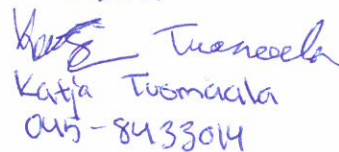 Katja Tuomaala
Katja Tuomaala
045-8433014